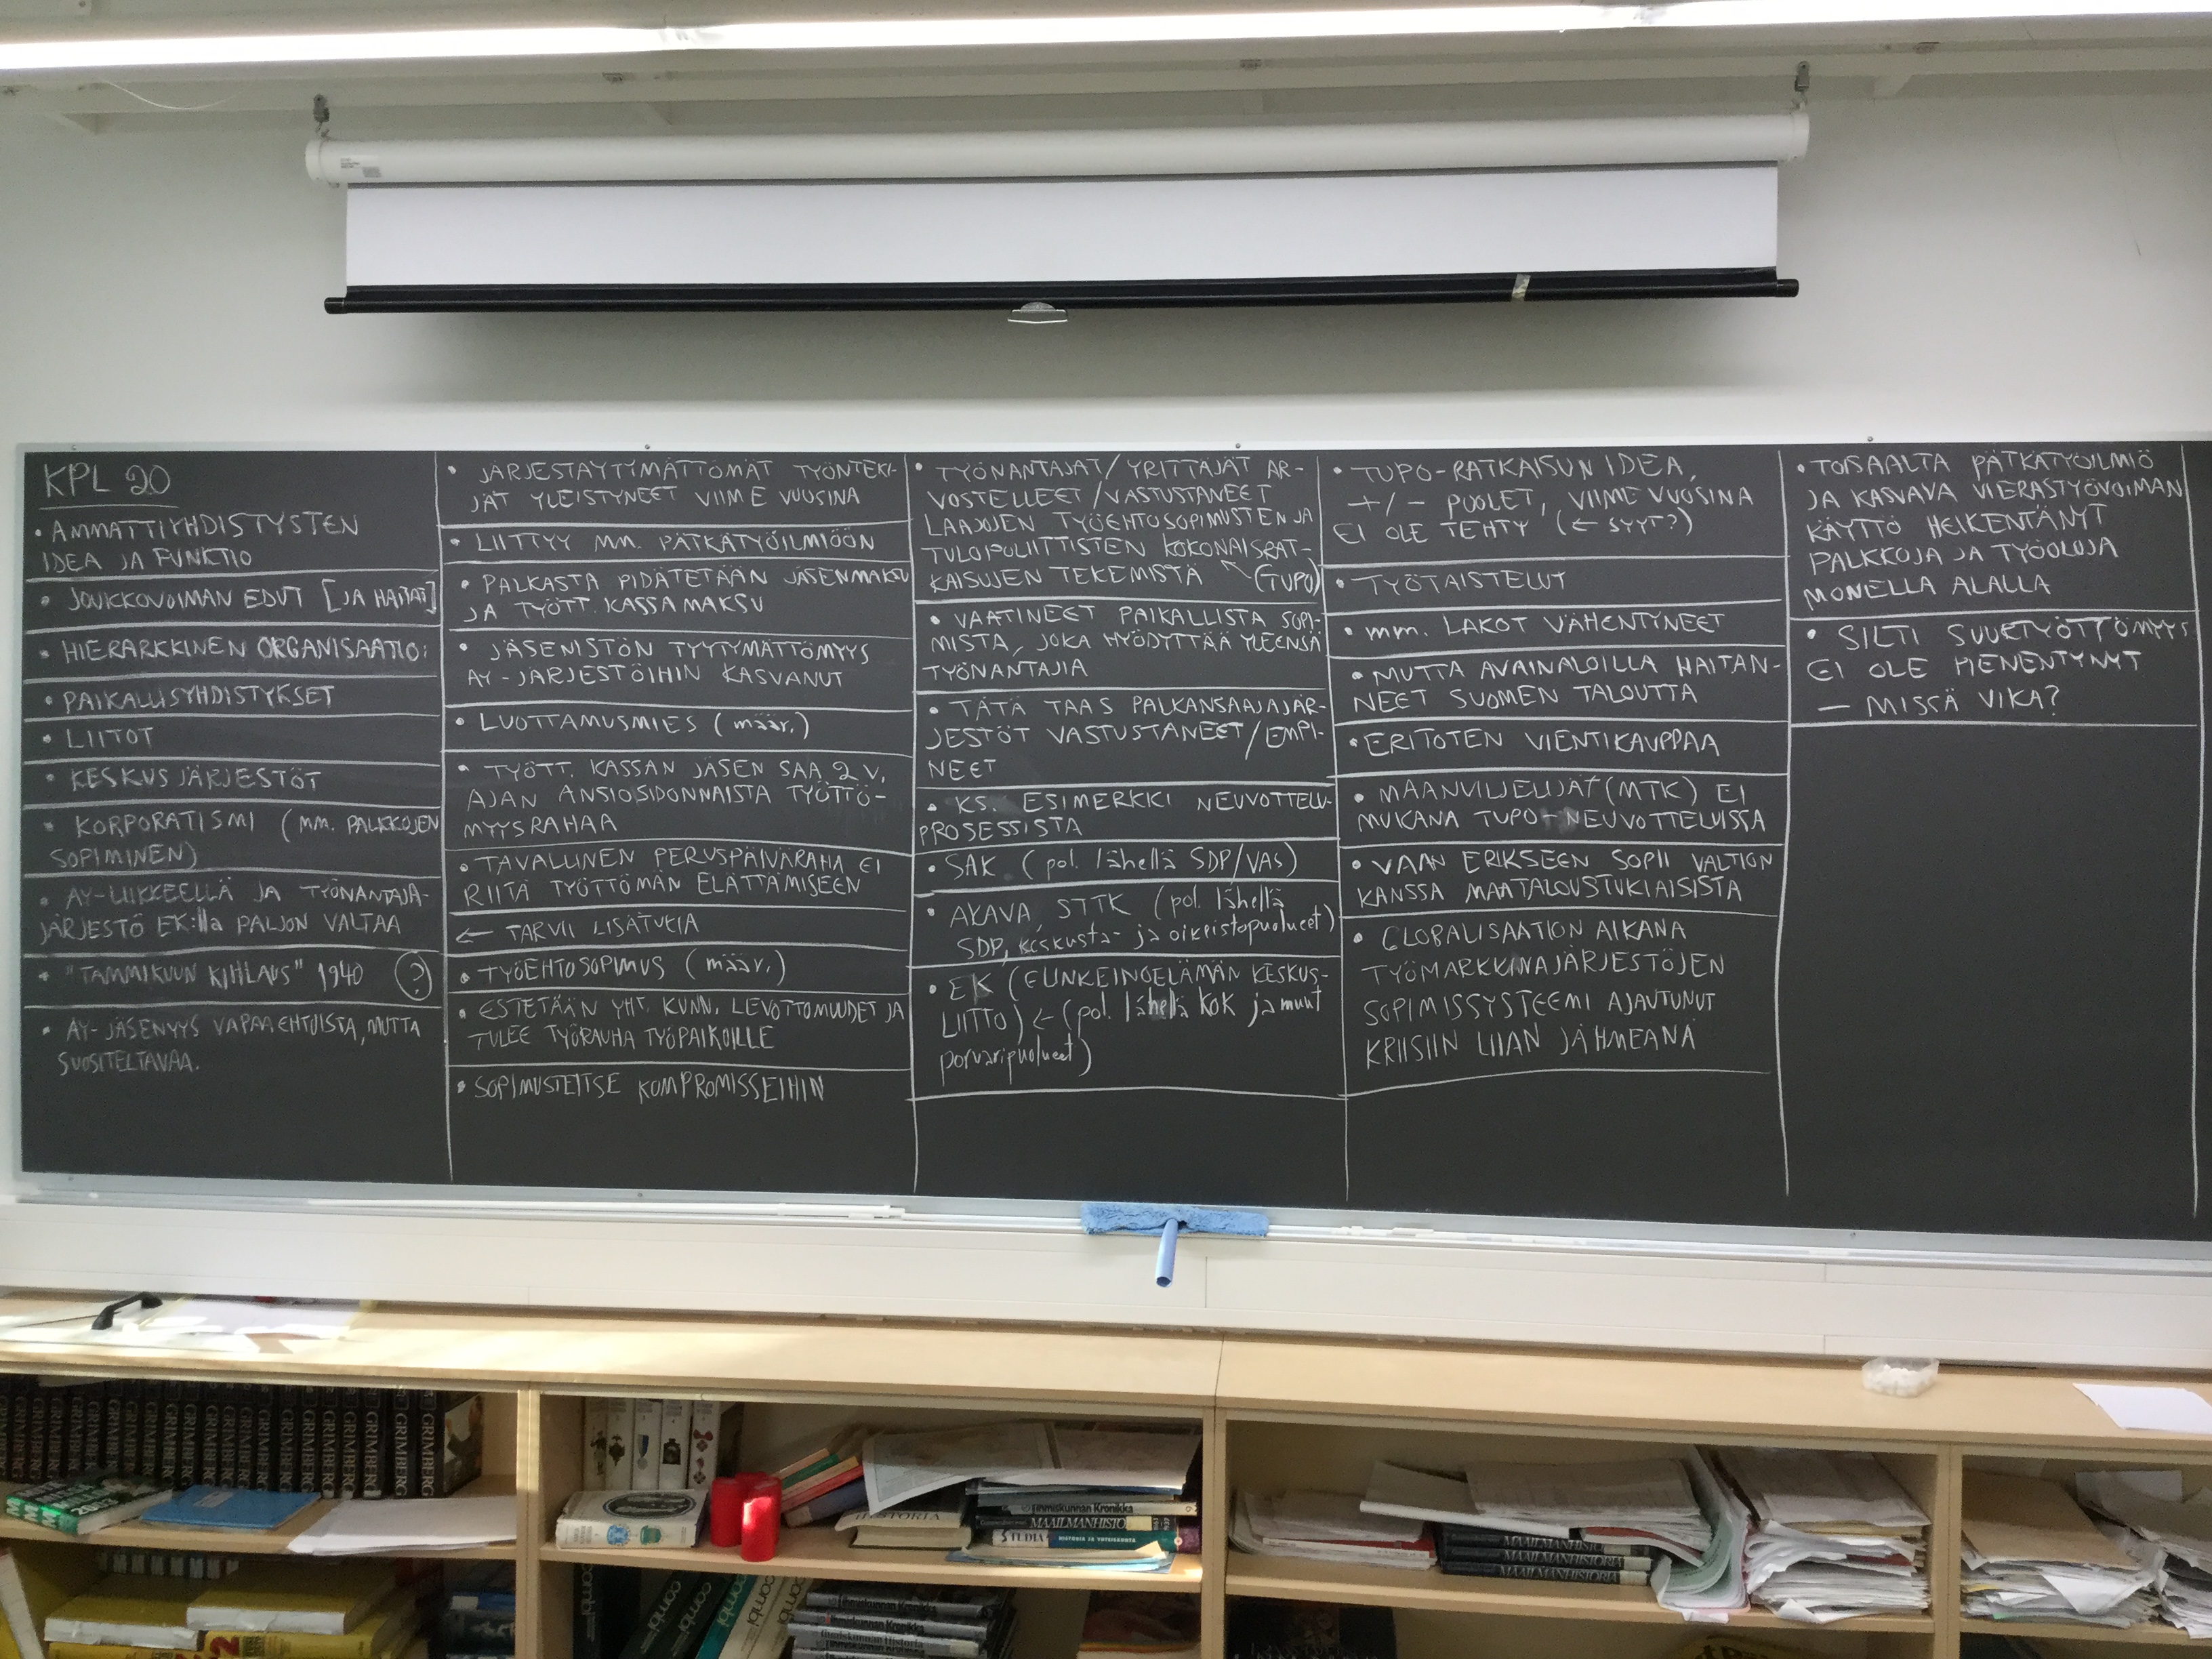 KPL 20
• AMMATTIYHDISTYSTEN
IDEA JA FUNKTIO
• JOUKKOVOIMAN EDUT [JA HAITAT]
• HIERARKKINEN ORGANISAATIO:
• PAIKALLISYHDISTYKSET
• LIITOT
• KESKUSJÄRJESTÖT
• KORPORATISMI (MM. PALKKOJEN
SOPIMINEN)
• AY-LIIKKEELLÄ JA TYÖNANTAJA-
JÄRJESTÖ EK:lla PALJON VALTAA
• "TAMMIKUUN KIHLAUS" 1940 (?)
• AY-JÄSENYYS VAPAAEHTOISTA, MUTTA
SUOSITELTAVAA.
• JÄRJESTÄYTYMÄTTÖMÄT TYÖNTEKI-
JÄT YLEISTYNEET VIIME VUOSINA
• LIITTYY MM. PÄTKÄTYÖILMIÖÖN
• PALKASTA PIDÄTETÄÄN JÄSENMAKSU
JA TYÖTT. KASSAMAKSU
• JÄSENISTÖN TYYTYMÄTTÖMYYS
AY-JÄRJESTÖIHIN KASVANUT
• LUOTTAMUSMIES (määr.)
• TYÖTT. KASSAN JÄSEN SAA 2 V.
AJAN ANSIOSIDONNAISTA TYÖTTÖ-
MYYSRAHAA
• TAVALLINEN PERUSPÄIVÄRAHA EI
RIITÄ TYÖTTÖMÄN ELÄTTÄMISEEN
← TARVII LISÄTUKIA
• TYÖEHTOSOPIMUS (määr.)
• ESTETÄÄN YHT. KUNN. LEVOTTOMUUDET JA
TULEE TYÖRAUHA TYÖPAIKOILLE
• SOPIMUSTEITSE KOMPROMISSEIHIN
• TYÖNANTAJAT/YRITTÄJÄT AR-
VOSTELLEET/VASTUSTANEET
LAAJOJEN TYÖEHTOSOPIMUSTEN JA
TULOPOLIITTISTEN KOKONAISRAT-
KAISUJEN TEKEMISTÄ ↖ (TUPO)
• VAATINEET PAIKALLISTA SOPI-
MISTA, JOKA HYÖDYTTÄÄ YLEENSÄ
TYÖNANTAJIA
• TÄTÄ TAAS PALKANSAAJAJÄR-
JESTÖT VASTUSTANEET/EMPI-
NEET
• KS. ESIMERKKI NEUVOTTELU-
PROSESSISTA
• SAK (pol. lähellä SDP/VAS)
• AKAVA, STTK (pol. lähellä
SDP, keskusta- ja oikeistopuolueet)
• EK (ELINKEINOELÄMÄN KESKUS-
LIITTO) ← (pol. lähellä KOK ja muut
porvaripuolueet)
• TUPO-RATKAISUN IDEA,
+/- PUOLET, VIIME VUOSINA
EI OLE TEHTY (← SYYT?)
• TYÖTAISTELUT
• mm. LAKOT VÄHENTYNEET
• MUTTA AVAINALOILLA HAITAN-
NEET SUOMEN TALOUTTA
• ERITOTEN VIENTIKAUPPAA
• MAANVILJELIJÄT (MTK) EI
MUKANA TUPO-NEUVOTTELUISSA
• VAAN ERIKSEEN SOPII VALTION
KANSSA MAATALOUSTUKIAISISTA
• GLOBALISAATION AIKANA
TYÖMARKKINAJÄRJESTÖJEN
SOPIMISSYSTEEMI AJAUTUNUT
KRIISIIN LIIAN JÄHMEÄNÄ
• TOISAALTA PÄTKÄTYÖILMIÖ
JA KASVAVA VIERASTYÖVOIMAN
KÄYTTÖ HEIKENTÄNYT
PALKKOJA JA TYÖOLOJA
MONELLA ALALLA
• SILTI SUURTYÖTTÖMYYS
EI OLE PIENENTYNYT
— MISSÄ VIKA?
GRIMBERG
GRIMBERG
GRIMBERG
GRIMBERG
GRIMBERG
GRIMBERG
HISTORIA
Ihmiskunnan Kronikka
MAAILMANHISTORIA
STUDIA HISTORIA JA YHTEISKUNTA
MAAILMANHISTORIA
MAAILMANHISTORIA
MAAILMANHISTORIA
combi
combi
combi
combi
Ihmiskunnan Kronikka
Ihmiskunnan Kronikka
Ihmiskunnan Historia